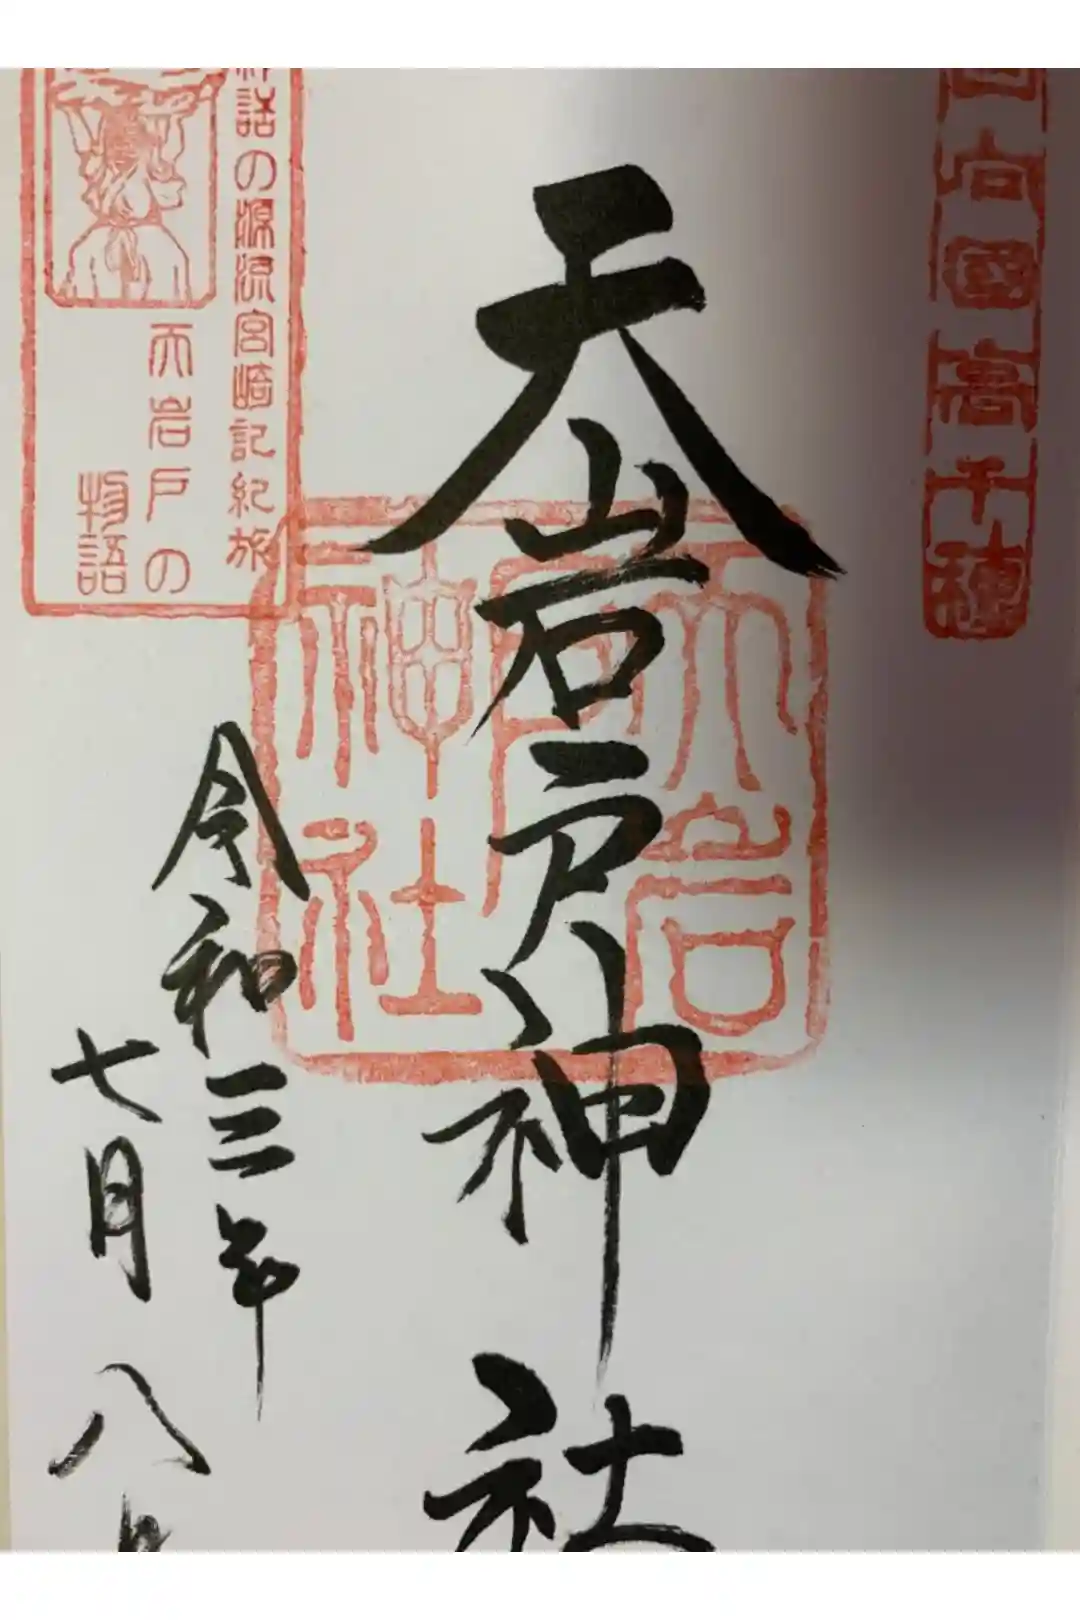 日向國高千穂
天岩戸神社
天岩戸神社
神話の源流宮崎記紀旅
天岩戸の
物語
令和三年
七月八日